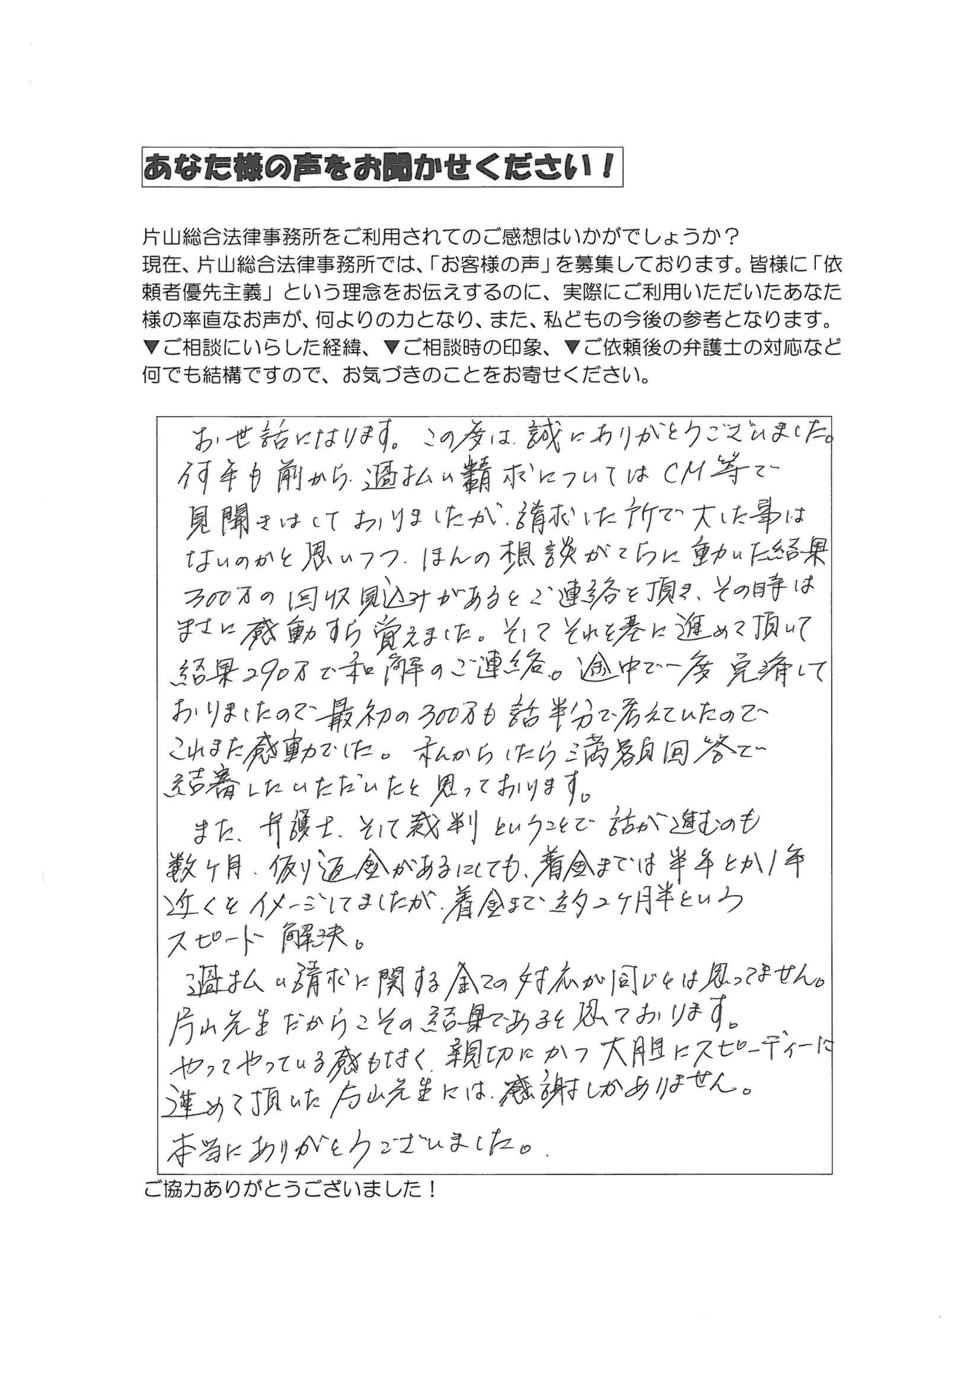 あなた様の声をお聞かせください！
片山総合法律事務所をご利用されてのご感想はいかがでしょうか？
現在、片山総合法律事務所では、「お客様の声」を募集しております。皆様に「依
頼者優先主義」という理念をお伝えするのに、実際にご利用いただいたあなた
様の率直なお声が、何よりの力となり、また、私どもの今後の参考となります。
▼ご相談にいらした経緯、▼ご相談時の印象、▼ご依頼後の弁護士の対応など
何でも結構ですので、お気づきのことをお寄せください。
お世話になります。この度は、誠にありがとうございました。
何年も前から、過払い請求についてはCM等で
見聞きはしておりましたが、請求した所で大した事は
ないのかと思いつつ、ほんの想談がてらに動いた結果
300万の回収見込みがあるとご連絡を頂き、その時は
まさに感動すら覚えました。そしてそれを基に進めて頂いて
結果290万で和解のご連絡。途中で一度完済して
おりましたので、最初の300万も話半分で考えていたので
これまた感動でした。私からしたら満額回答で
結審したいただいたと思っております。
また、弁護士、そして裁判ということで話が進むのも
数ヶ月、仮り返金があるにしても、着金までは半年とか1年
近くをイメージしてましたが、着金まで約2ヶ月半という
スピード解決。
過払い請求に関する全ての対応が同じとは思ってません。
片山先生だからこその結果であると思ております。
やってやっている感もなく、親切にかつ大胆にスピーディーに
進めて頂いた片山先生には、感謝しかありません。
本当にありがとうございました。
ご協力ありがとうございました！